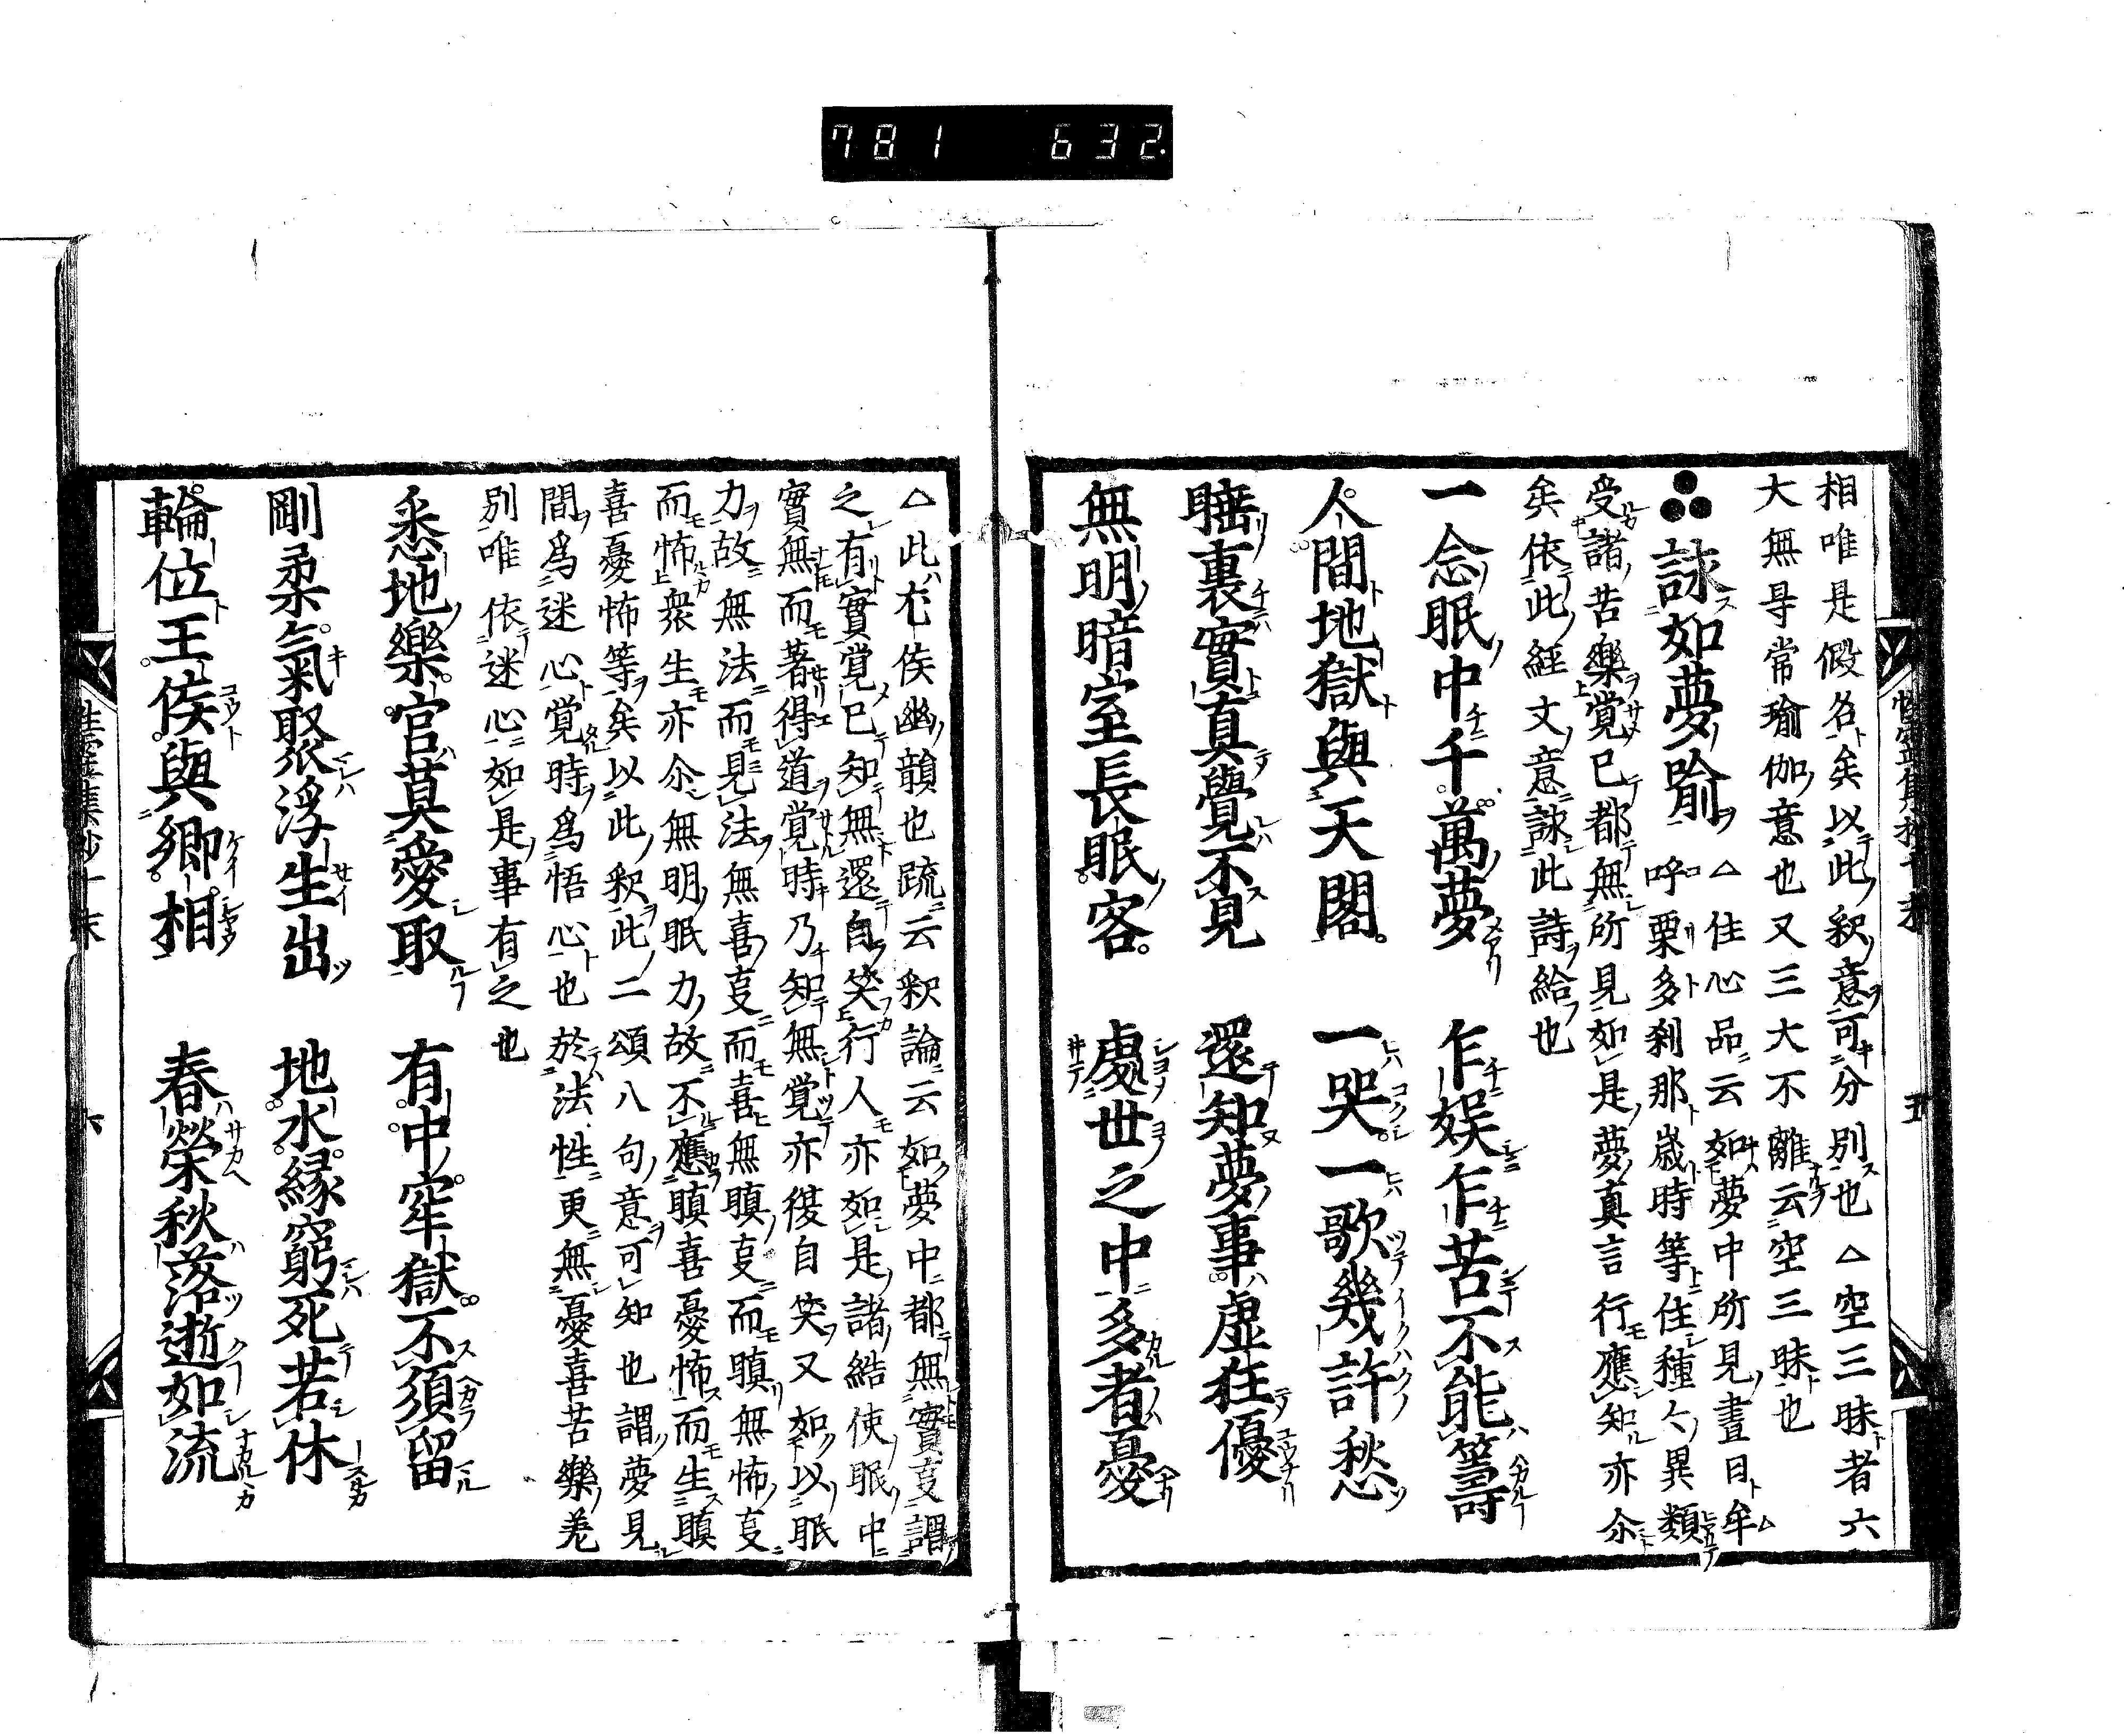 781 632.
相唯是假名矣以此釈意可分別也△空三昧者六
大無㝵常瑜伽意也又三大不離云空三昧也
詠如夢喩 △住心品云如夢中所見晝日牟
呼栗多刹那歳時等住種々異類
受諸苦樂覚已都無所見如是夢真言行應知亦尒
矣依此經文意詠此詩給也
一念眠中千萬夢 乍娯乍苦不能籌
人間地獄與天閣 一哭一歌幾許愁
睡裏實真覺不見 還知夢事虚狂優
無明暗室長眠客 處世之中多者憂
△此尤侯幽韻也䟽云釈論云如夢中都無實㕝謂
之有實覚已知無還自笑行人亦如是諸結使眠中
實無而著得道覚時乃知無覚亦復自笑又如以眠
力故無法而見法無喜㕝而喜無瞋㕝而瞋無怖㕝
而怖衆生亦尒無明眠力故不應瞋喜憂怖而生瞋
喜憂怖等矣以此釈此二頌八句意可知也謂夢見
間爲迷心覚時爲悟心也於法性更無憂喜苦樂差
別唯依迷心如是事有之也
悉地樂宮莫愛取 有中牢獄不須留
剛柔氣聚浮生出 地水縁窮死若休
輪位王侯與卿相 春榮秋落逝如流
性霊集抄十末 五
性霊集抄十末 六